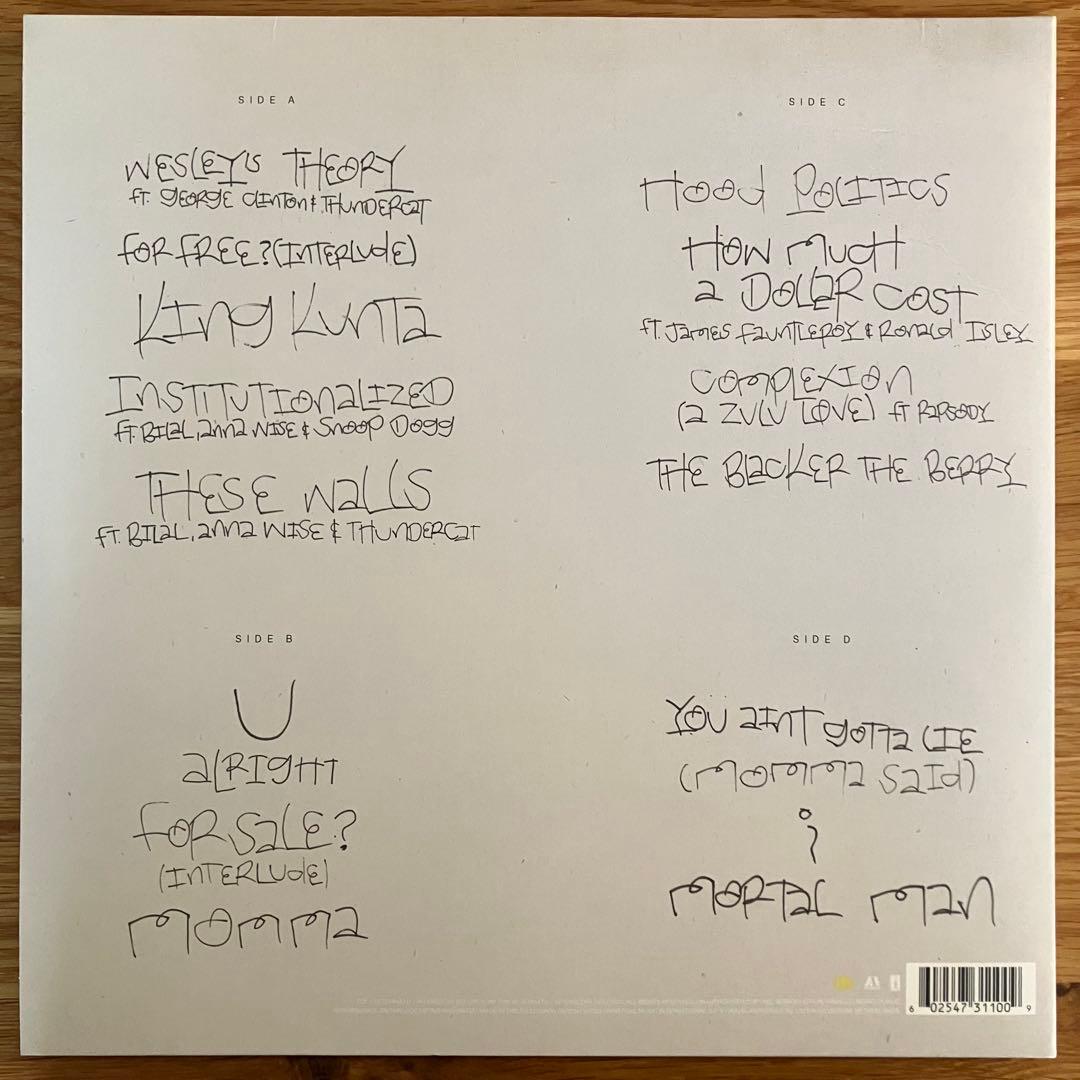 SIDE A
WESLEY'S THEORY
ft. GEORGE CLINTON & THUNDERCAT
FOR FREE? (INTERLUDE)
KING KUNTA
INSTITUTIONALIZED
ft. BILAL, ANNA WISE & SNOOP DOGG
THESE WALLS
ft. BILAL, ANNA WISE & THUNDERCAT
SIDE B
U
ALRIGHT
FOR SALE?
(INTERLUDE)
MOMMA
SIDE C
HOOD POLITICS
HOW MUCH
A DOLLAR COST
ft. JAMES FAUNTLEROY & RONALD ISLEY
COMPLEXION
(A ZULU LOVE) ft RAPSODY
THE BLACKER THE BERRY
SIDE D
YOU AINT GOTTA LIE
(MOMMA SAID)
i
MORTAL MAN
6 02547 31100 9